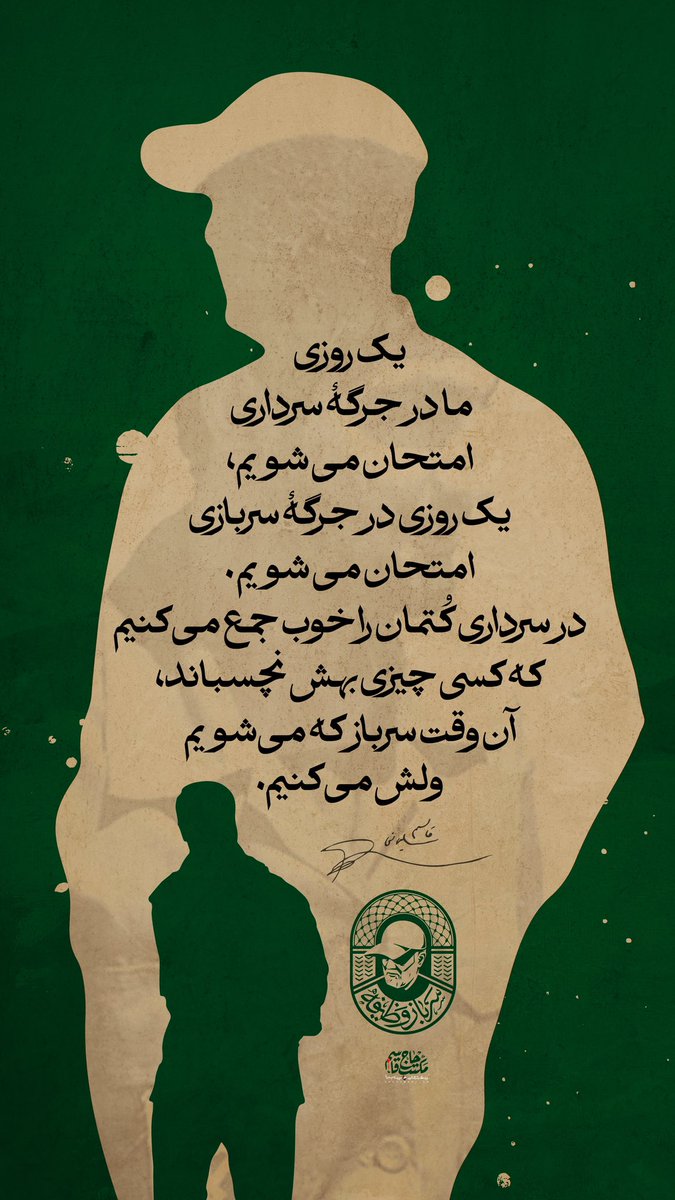 یک روزی
ما در جرگهٔ سرداری
امتحان می‌شویم،
یک روزی در جرگهٔ سربازی
امتحان می‌شویم.
در سرداری کُتمان را خوب جمع می‌کنیم
که کسی چیزی بهش نچسباند،
آن وقت سرباز که می‌شویم
ولش می‌کنیم.
قاسم سلیمانی
سرباز وظیفه
مکتب حاج قاسم